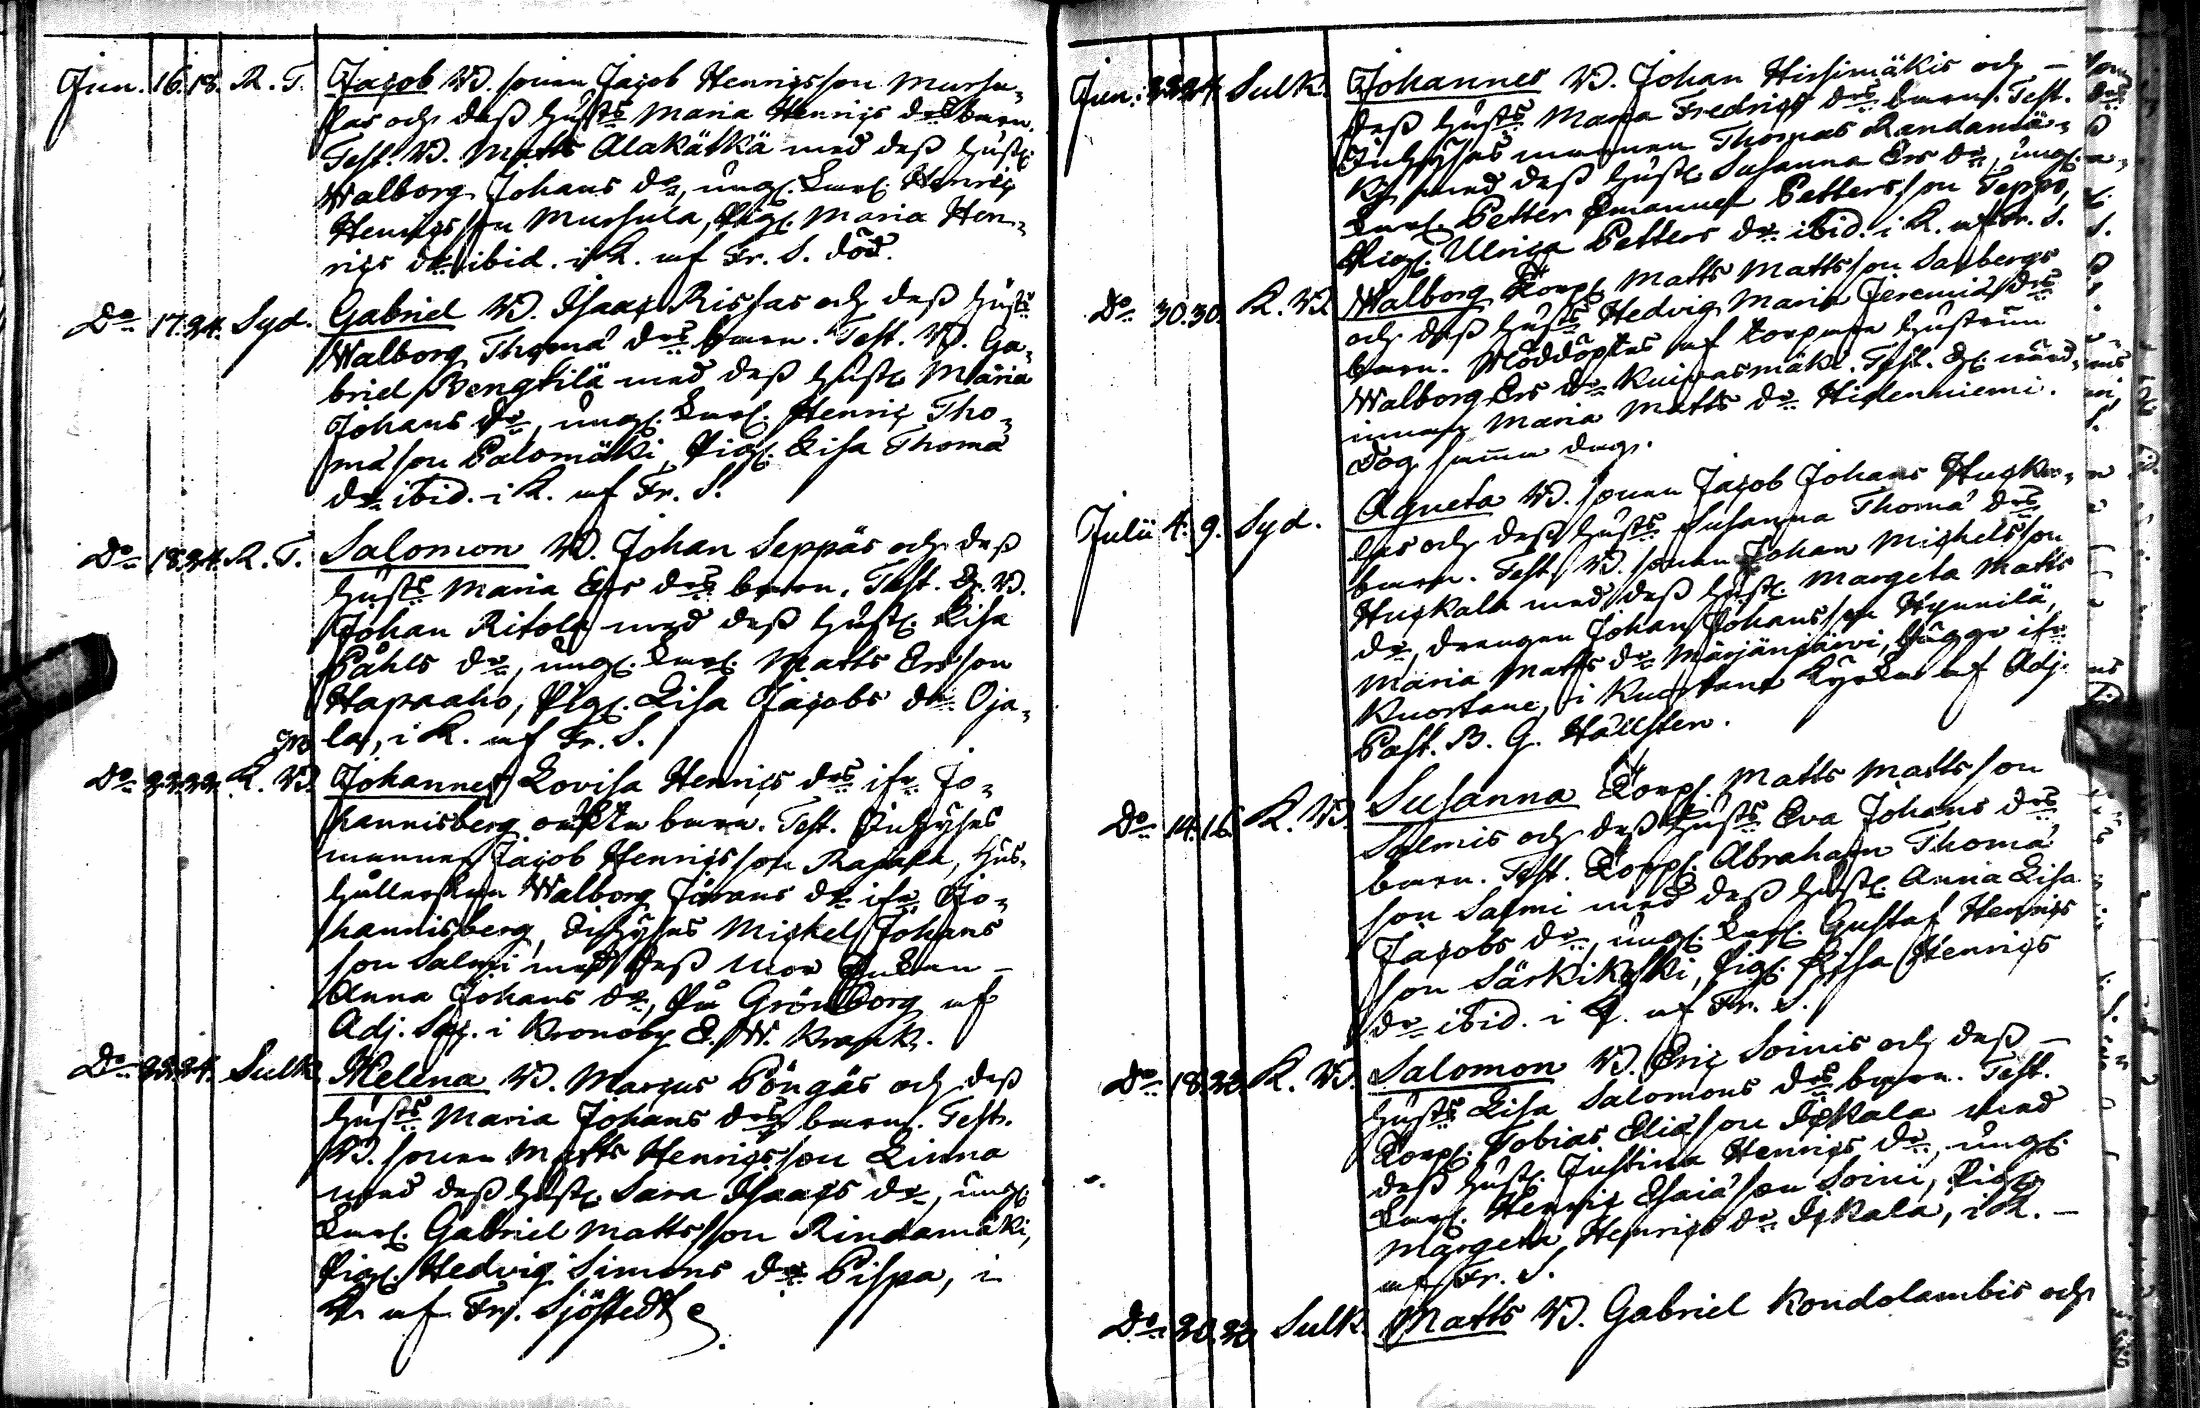 Jun. 16. 18. K. T. Jacob B. sonen Jacob Henricsson Mursu-
las och dess Hust:s Maria Henrics d:rs barn.
Test. B. Matts Alakätkä med dess Hust:
Walborg Johans d:r, ung. karl. Henric
Henricsson Mursula, Pig. Maria Hen-
rics d:r ibid. i K. af Fr. S. död.
D:o 17. 24. Syd. Gabriel B. Isaac Rissas och dess Hust:s
Walborg Thomæ d:rs barn. Test. B. Ga-
briel Bengtilä med dess Hust: Maria
Johans d:r, ung. karl. Henric Tho-
mæson Palomäki, Pig. Lisa Thomæ
d:r ibid. i K. af Fr. S.
D:o 18. 24. K. T. Salomon B. Johan Seppäs och dess
Hust:s Maria Ers d:rs barn. Test. B.
Johan Ritola med dess Hust: Lisa
Påhls d:r, ung. karl. Matts Ersson
Hapaaho, Pig. Lisa Jacobs d:r Oja-
la, i K. af Fr. S.
D:o 22. 22. K. B. Johannes Lovisa Henrics d:rs ifr. Jo-
hannisberg oäkta barn. Test. Inhyses
mannen Jacob Henricsson Rajala, Hus-
hållerskan Walborg Jörans d:r ifr. Jo-
hannisberg, Inhyses Michel Johans
son Salmi med dess Mor Enkan
Anna Johans d:r, på Grönborg af
Adj. i Kronoby E. W. Krank.
D:o 22. 24. Sulk. Helena B. Marcus Pöngäs och dess
Hust:s Maria Johans d:rs barn. Test.
B. sonen Matts Henricsson Linna
med dess Hust: Sara Isaacs d:r, ung.
karl. Gabriel Mattsson Rindamäki,
Pig. Hedvig Simons d:r Pispa, i
K. af Fr. Sjöstedt
Jun. 22. 24. Sulk. Johannes B. Johan Hirsimäkis och
dess Hust:s Maria Fredrics d:rs barn. Test.
Inhyses mannen Thomas Randamä-
ki med dess Hust: Susanna Ers d:r, ung.
karl. Petter Emanuel Pettersson Teppo,
Pig. Ulrica Petters d:r ibid. i K. af Fr. S.
D:o 30. 30. K. B. Walborg Torp. Matts Mattsson Salbergs
och dess Hust:s Hedvig Maria Jeremiæ d:rs
barn. Nöddöptes af torpare Hustrun
Walborg Ers d:r Kuirasmäki. Test.
Maria Matts d:r Hietenniemi.
Dog samma dag.
Julii 4. 9. Syd. Agneta B. sonen Jacob Johans Huska-
las och dess Hust:s Susanna Thomæ d:rs
barn. Test. B. sonen Johan Michelsson
Huskala med dess Hust: Margeta Matts
d:r, drengen Johan Johansson Hynnilä,
Maria Matts d:r Märjänjärvi, bägge ifr.
Kuortane, i Kuortane Kyrka af Adj.
Past. B. G. Hällsten.
D:o 14. 16. K. B. Susanna Torp. Matts Mattsson
Salmis och dess Hust:s Eva Johans d:rs
barn. Test. Torp. Abraham Thomæ
son Salmi med dess Hust: Anna Lisa
Jacobs d:r, ung. karl. Gustaf Henrics
son Särkikoski, Pig. Lisa Henrics
d:r ibid. i K. af Fr. S.
D:o 18. 23. K. B. Salomon B. Eric Soinis och dess
Hust:s Lisa Salomons d:rs barn. Test.
Torp. Tobias Eliæson Ickala med
dess Hust: Justina Henrics d:r, ung.
karl. Henric Esaiæson Soini, Pig.
Margeta Henrics d:r Ickala, i K.
af Fr. S.
D:o 20. 23. Sulk. Matts B. Gabriel Kondolambis och